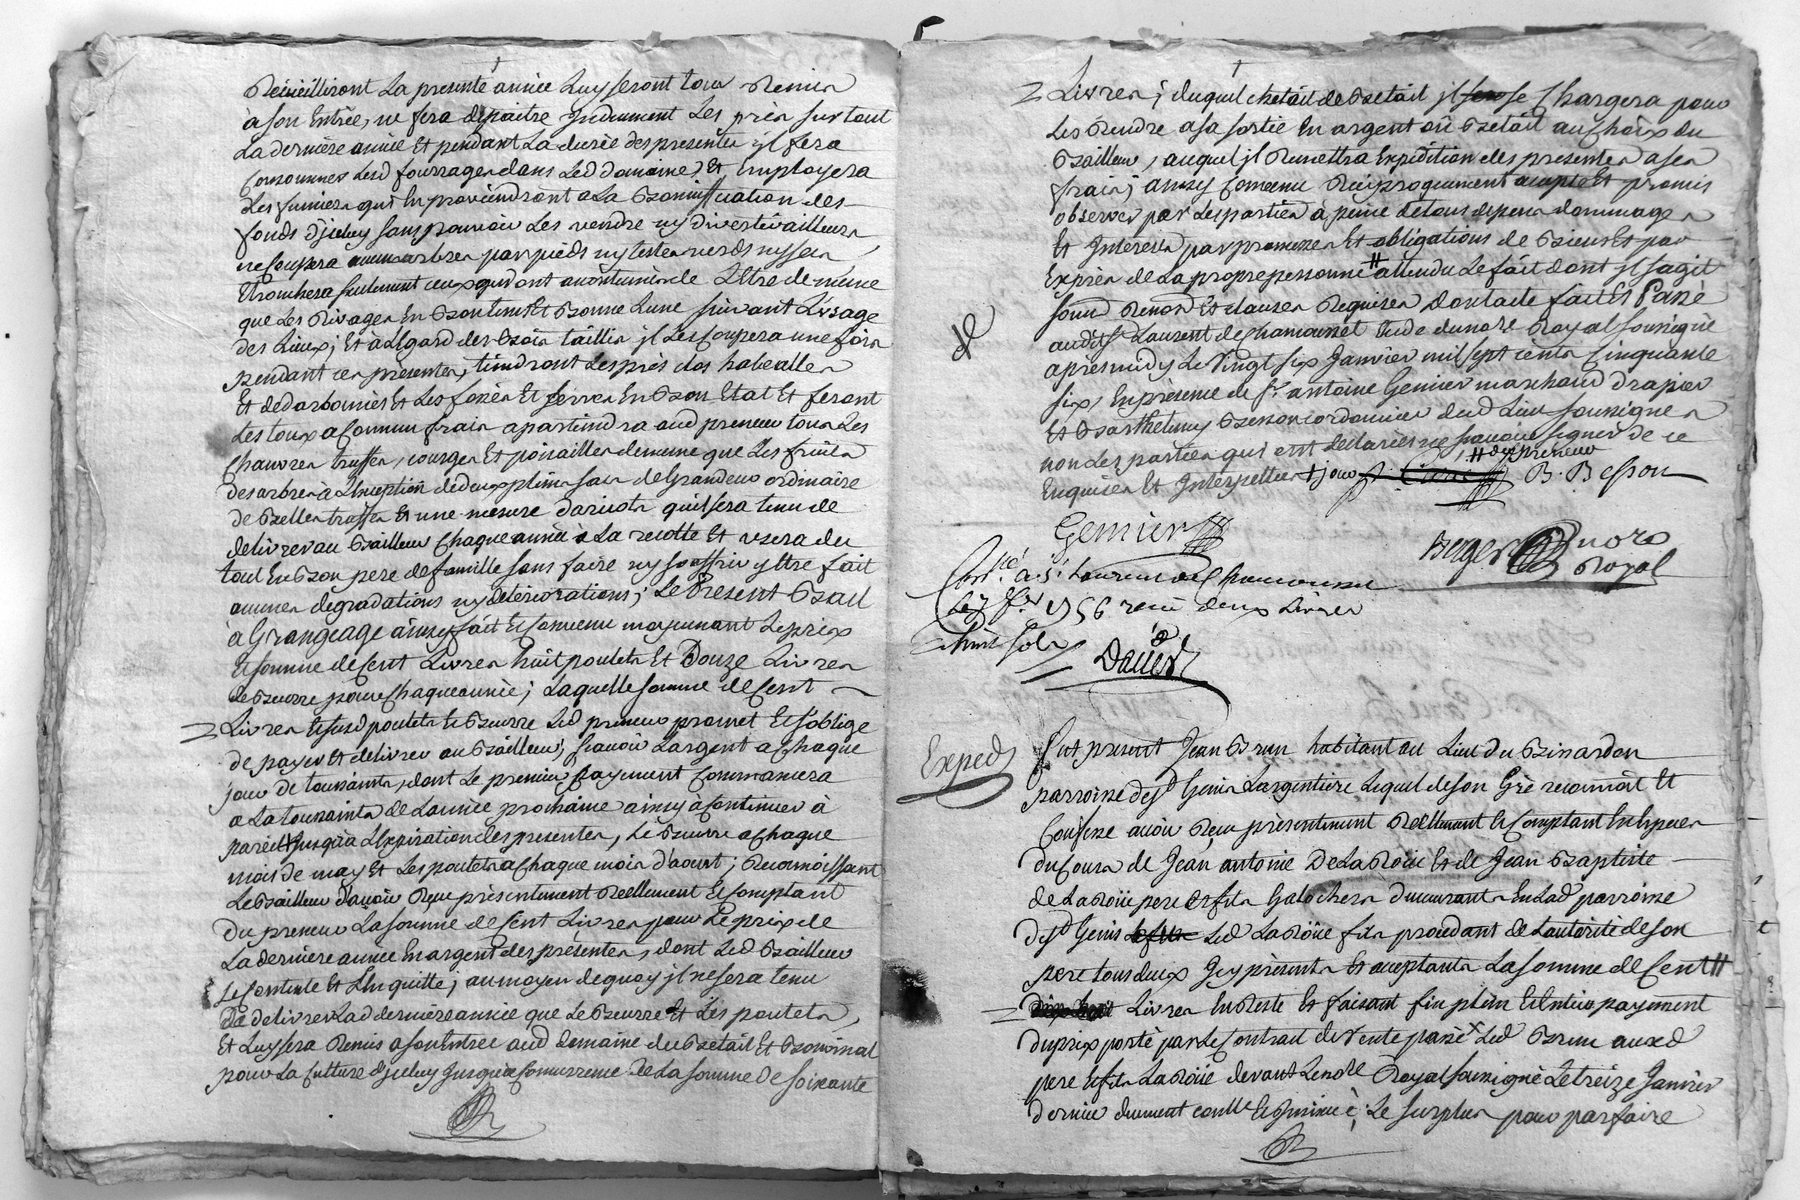 Recueilliront La presente année Luy seront tous Remis
à son Entrée, ne fera depaitre Induement Les prés sur tout
La derniere année Et pendant La durée des presentes il fera
Consommer Lesd fourrages dans Led domaine, Et Employera
Les fumiers qui En proviendront a La Bonniffication des
fonds d'iceluy sans pouvoir Les vendre ny divertir ailleurs
ne Coupera aucuns arbres par pieds ny testes verds ny secs
Et ronchera seulement ceux qui ont accoutumés de L'Etre de même
que Les Rivages En Bon tems Et Bonne Lune suivant L'usage
des Lieux; Et à L'Egard des Bois taillis il Les Coupera une fois
pendant ces presentes, tiendront Les prés clos
Et Les fossés Et serves En Bon Etat Et feront
Les toux a Commun frais apartiendra aud preneur tous Les
Chanvres truffes, courges Et poisailles de meme que Les fruits
des arbres à L'Exception de deux pleins sacs de Grandeur ordinaire
de Belles truffes Et une mesure d'aricots qu'il sera tenu de
delivrer au Bailleur Chaque année a La recolte Et usera du
tout En Bon pere de famille sans faire ny souffrir y Etre fait
aucunes degradations ny deteriorations; Le Present Bail
à Grangeage ainsy fait Et Convenu moyennant Le prix
Et somme de Cent Livres huit poulets Et Douze Livres
de Beurre pour Chaque année; Laquelle somme de Cent
Livres Et susd poulets Et Beurre Led preneur promet Et s'oblige
de payer Et delivrer au Bailleur; scavoir L'argent a Chaque
jour de toussaints, dont Le premier payement Commancera
a La toussaints de L'année prochaine ainsy a Continuer à
pareil Jusqu'à L'Expiration des presentes, Le Beurre a Chaque
mois de may Et Les poulets a Chaque mois d'aoust; Reconnoissant
Le Bailleur d'avoir Reçu présentement Réellement Et Comptant
Du preneur La somme de Cent Livres pour Le prix de
La derniere année En argent des présentes, dont Led Bailleur
se Contente Et L'En quitte; au moyen de quoy il ne sera tenu
de delivrer Lad derniere année que Le Beurre Et Les poulets,
Et Luy sera Remis a son Entrée aud domaine du Betail Et Bouvinal
pour La Culture d'iceluy Jusqu'a Concurrence De La somme De soixante
Livres; duquel chetail de Betail il se Chargera pour
Les Rendre a sa sortie En argent ou Betail au Choix du
Bailleur, auquel il Remettra Expédition des presentes a ses
frais; ainsy Convenu Reciproquement accepté Et promis
observer par Les parties à peine de tous depens dommages
Et Interests par promesses Et obligations de Biens Et par
Exprés de sa propre personne # attendu Le fait dont il s'agit
soumd Renond Et clauses Requises Dont acte fait Et Passé
aud St Laurent de Chamousset Etude du nore Royal soussigné
aprés midy Le Vingt six Janvier mil sept cents Cinquante
six, En présence de Sr antoine Genier marchand drapier
Et Barthelemy Besson cordonnier dud Lieu soussignés
non Les parties qui ont declarés ne sçavoir signer de ce
Enquises Et Interpellées + jour
# du preneur
B. Besson
Genier
Berger nore
Royal
Conllé a St Laurent de Chamousset
Le 7 fer 1756 recu deux Livres
huit sols
Expedé
Fut present Jean Brun habitant au Lieu du Binardon
parroisse de St Genis Largentiere Lequel de son Gré reconnoit Et
Confesse avoir Reçu présentement Réellement Et Comptant En Especes
du Cours de Jean antoine De La Roüe Et de Jean Baptiste
de La Roüe pere Et fils Galochers demeurants En Lad parroisse
de St Genis Led La Roüe fils procedant de L'autorité de son
pere tous deux Icy présents Et acceptants La somme de Cent #
Livres En Reste Et faisant fin plein Et Entier payement
du prix porté par Le Contrat de Vente passé × Led Brun auxd
pere Et fils La Roüe devant Le nore Royal soussigné Le treize Janvier
dernier duement conllé Et Insinué; Le surplus pour parfaire